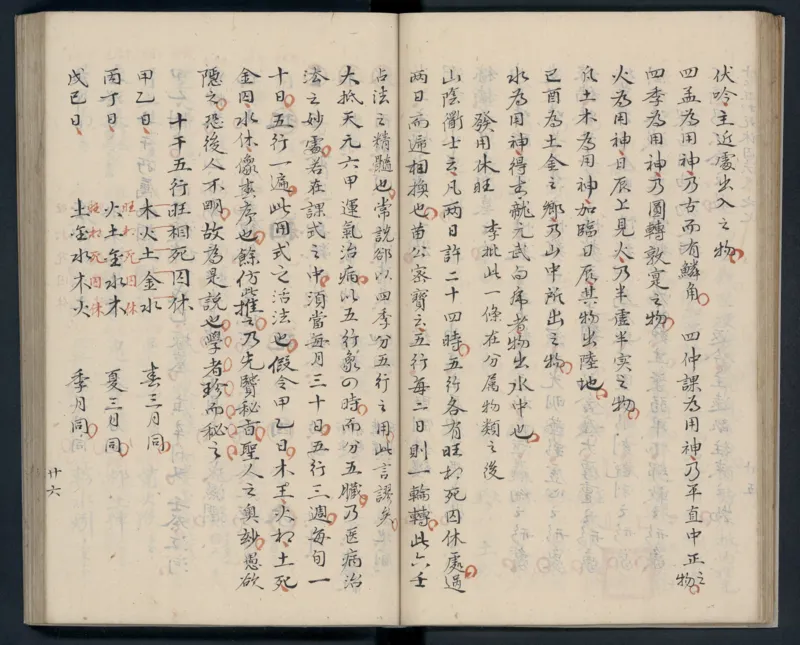 伏吟主近處出入之物
四孟為用神乃古而有鱗角　四仲課為用神乃平直中正之物
四季為用神乃圓轉敦寔之物
火為用神日辰上見火乃半虛半实之物
土木為用神加臨日辰其物出陸地
已酉為土金之鄉乃山中所出之物
水為用神得玄龍元武白虎者物出水中也
發用休旺　李批此一條在分属物類之後
山陰衢士云凡兩日許二十四時五行各有旺相死囚休處過
兩日而遞相換也苗公家寶云五行每二日則一輪轉此六壬
占法之精髓也常說卻以四季分五行之用此言謬矣
大抵天元六甲運氣治病以五行象四時而分五臟乃医病治
法之妙處若在課式之中須當每月三十日五行三週每旬一
十日五行一遍此用式之活法也假令甲乙日木王火相土死
金囚水休像序也餘仿此推之乃先賢秘旨聖人之奧玅愚欲
隱之恐後人不明故為是說也學者珍而秘之
十干五行旺相死囚休
甲乙日　木火土金水　春三月同
旺相死囚休
丙丁日　火土金水木　夏三月同
旺相死囚休
戊巳日　土金水木火　季月同
廿六